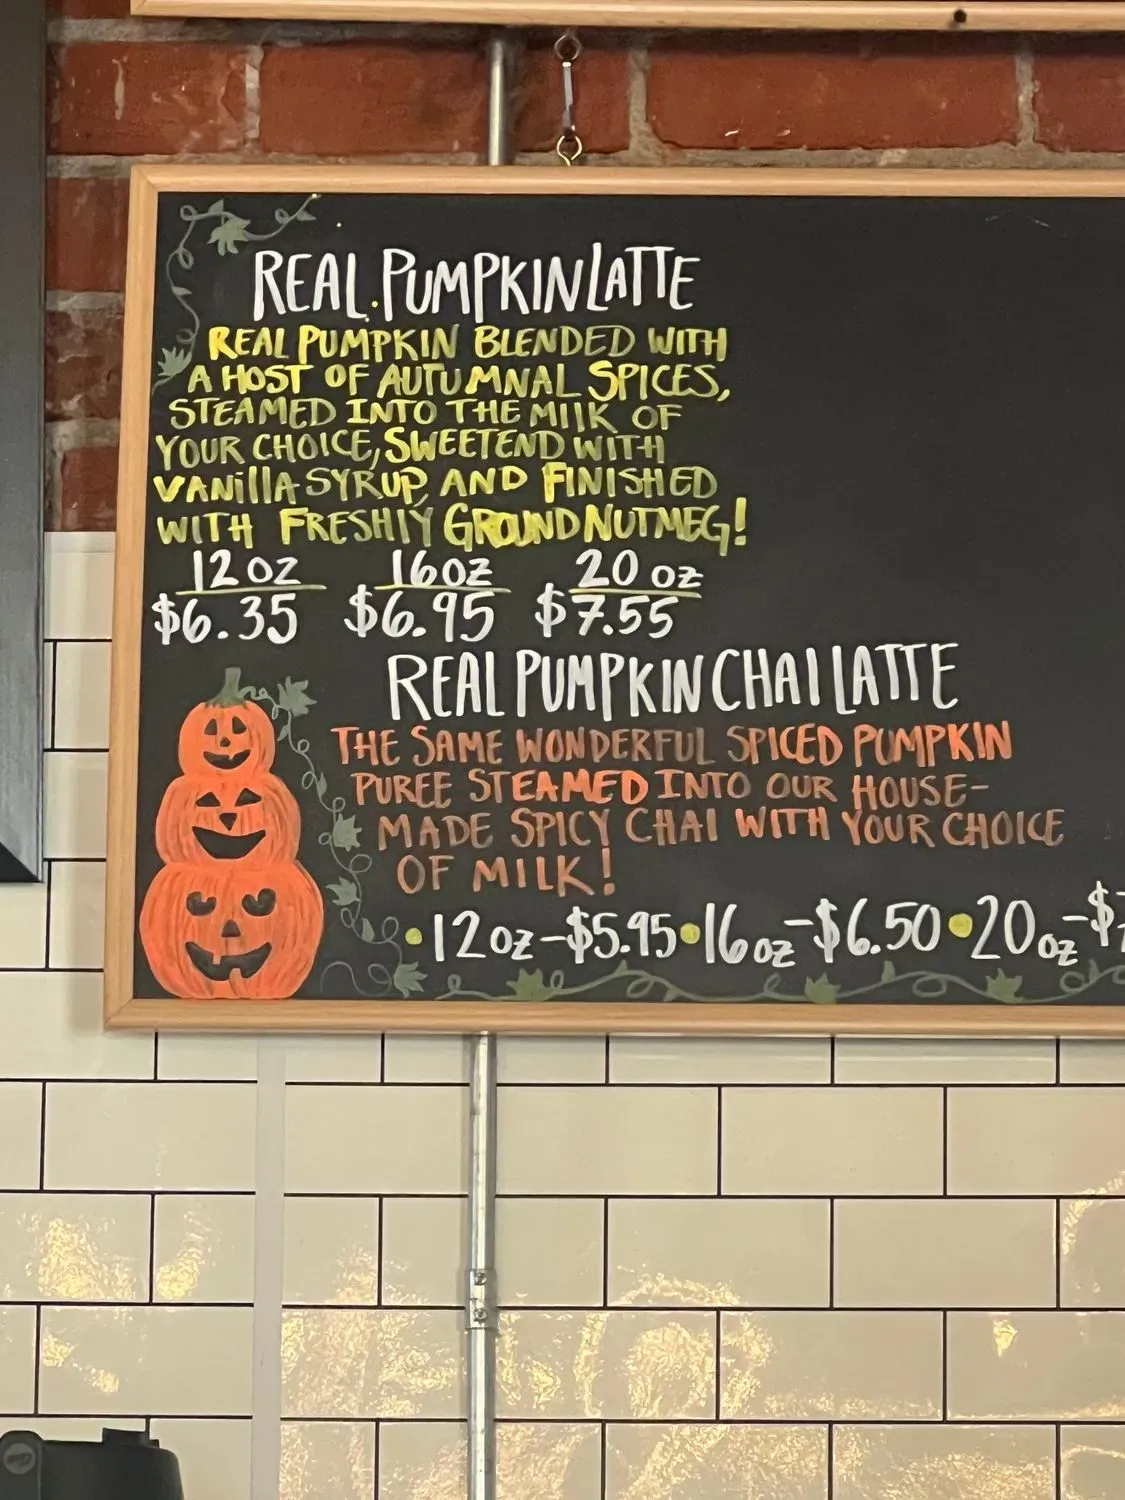 REAL PUMPKIN LATTE
REAL PUMPKIN BLENDED WITH
A HOST OF AUTUMNAL SPICES,
STEAMED INTO THE MIlK OF
YOUR CHOICE, SWEETEND WITH
VANillA SYRUP AND FINISHED
WITH FRESHlY GROUND NUTMEG!
12 oz 16 oz 20 oz
$6.35 $6.95 $7.55
REAL PUMPKIN CHAI LATTE
THE SAME WONDERFUL SPICED PUMPKIN
PUREE STEAMED INTO OUR HOUSE-
MADE SPICY CHAI WITH YOUR CHOICE
OF MILK!
• 12 oz - $5.95 • 16 oz - $6.50 • 20 oz - $